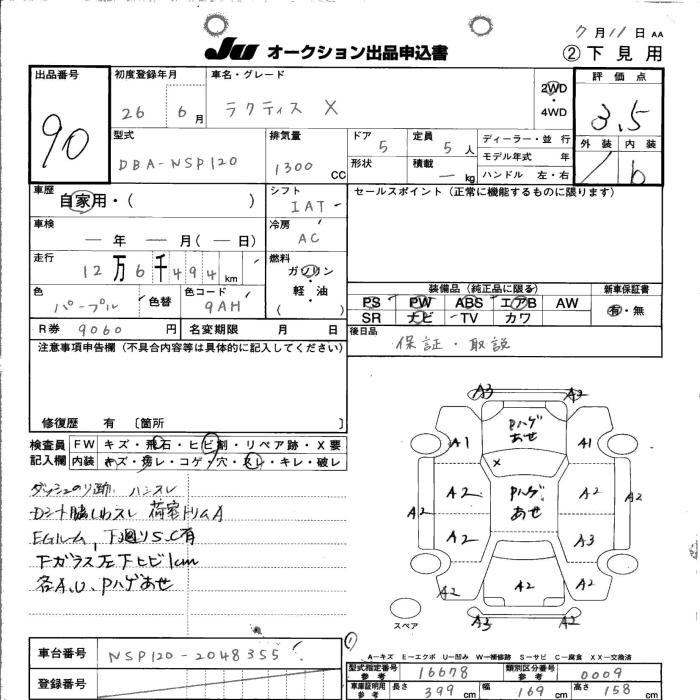 7月11日 AA
JU オークション出品申込書 ②下見用
出品番号 90
初度登録年月 26 6月
車名・グレード ラクティス X
2WD・4WD
評価点 3.5
外装 内装 b
型式 DBA-NSP120
排気量 1300 CC
ドア 5
定員 5人
形状
積載 — kg
ディーラー・並行
モデル年式 年
ハンドル 左・右
車歴 自家用・( )
シフト IAT
セールスポイント(正常に機能するものに限ります)
車検 — 年 — 月(— 日)
冷房 AC
走行 12万6千494km
燃料 ガソリン・軽・油 ( )
色 パープル 色替
色コード 9AH
装備品(純正品に限る)
PS PW ABS エアB AW
SR ナビ TV カワ
新車保証書 有・無
R券 9060円 名変期限 月 日
後日品 保証・取説
注意事項申告欄(不具合内容等は具体的に記入してください)
修復歴 有 〔箇所 〕
検査員記入欄
FW キズ・飛石・ヒビ割・リペア跡・X要
内装 キズ・汚レ・コゲ・穴・スレ・キレ・破レ
ダッシュのり跡 ハンスレ
Dシート脇しわスレ 荷室トリムA
EGルーム、下廻りS.C有
下ガラス左下ヒビ1cm
各A.U、Pハゲあせ
A3 A2
Pハゲ
あせ
A1 A1
X
A2 A2 Pハゲ A2 A2
あせ
A2 A3
A2 A2 A2
スペア A3 A2
A—キズ E—エクボ U—凹み W—補修跡 S—サビ C—腐食 XX—交換済
車台番号 NSP120-2048355
登録番号
型式指定番号 参考 16678
類別区分番号 参考 0009
車庫証明用 参考 長さ 399cm 幅 169cm 高さ 158cm